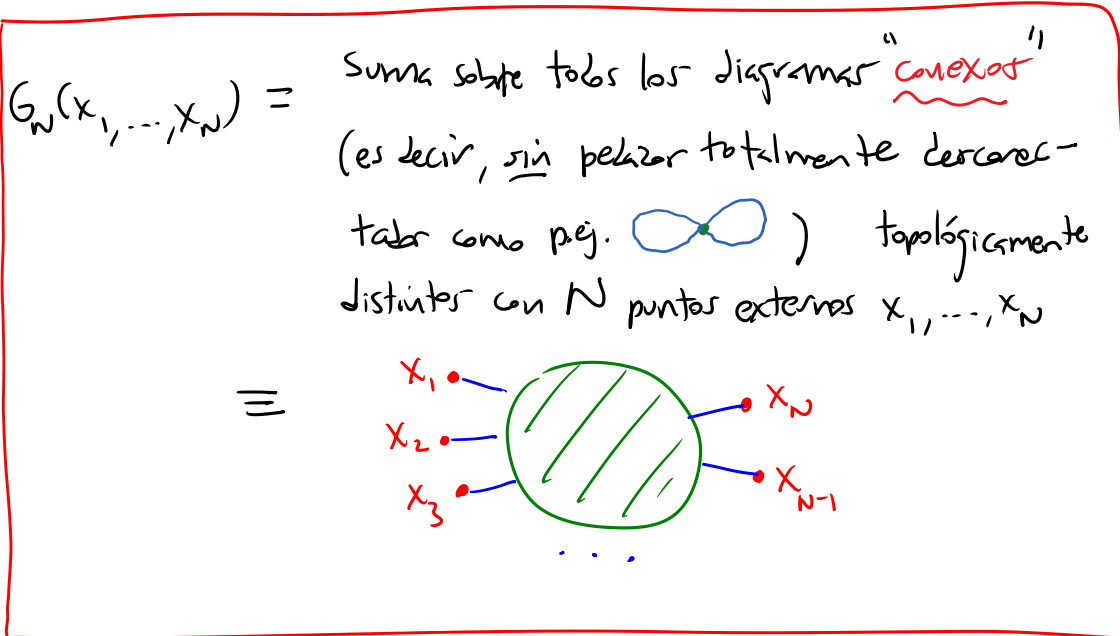 G_N(x_1,...,x_N) = Suma sobre todos los diagramas "conexos"
(es decir, sin pedazos totalmente desconec-
tados como p.ej. ) topológicamente
distintos con N puntos externos x_1,...,x_N
≡
x_1
x_N
x_2
x_3
x_{N-1}
...